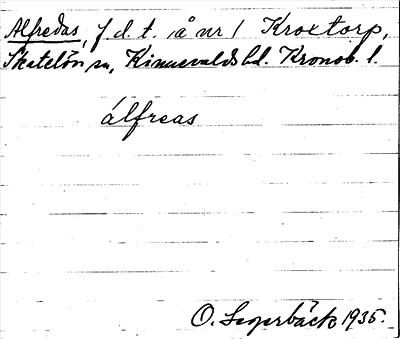 Alfredas, f d. t. å nr 1 Kroxtorp,
Skatelöv sn, Kinnevalds hd. Kronob. l.
álfreas
O. Segerbäck 1935.